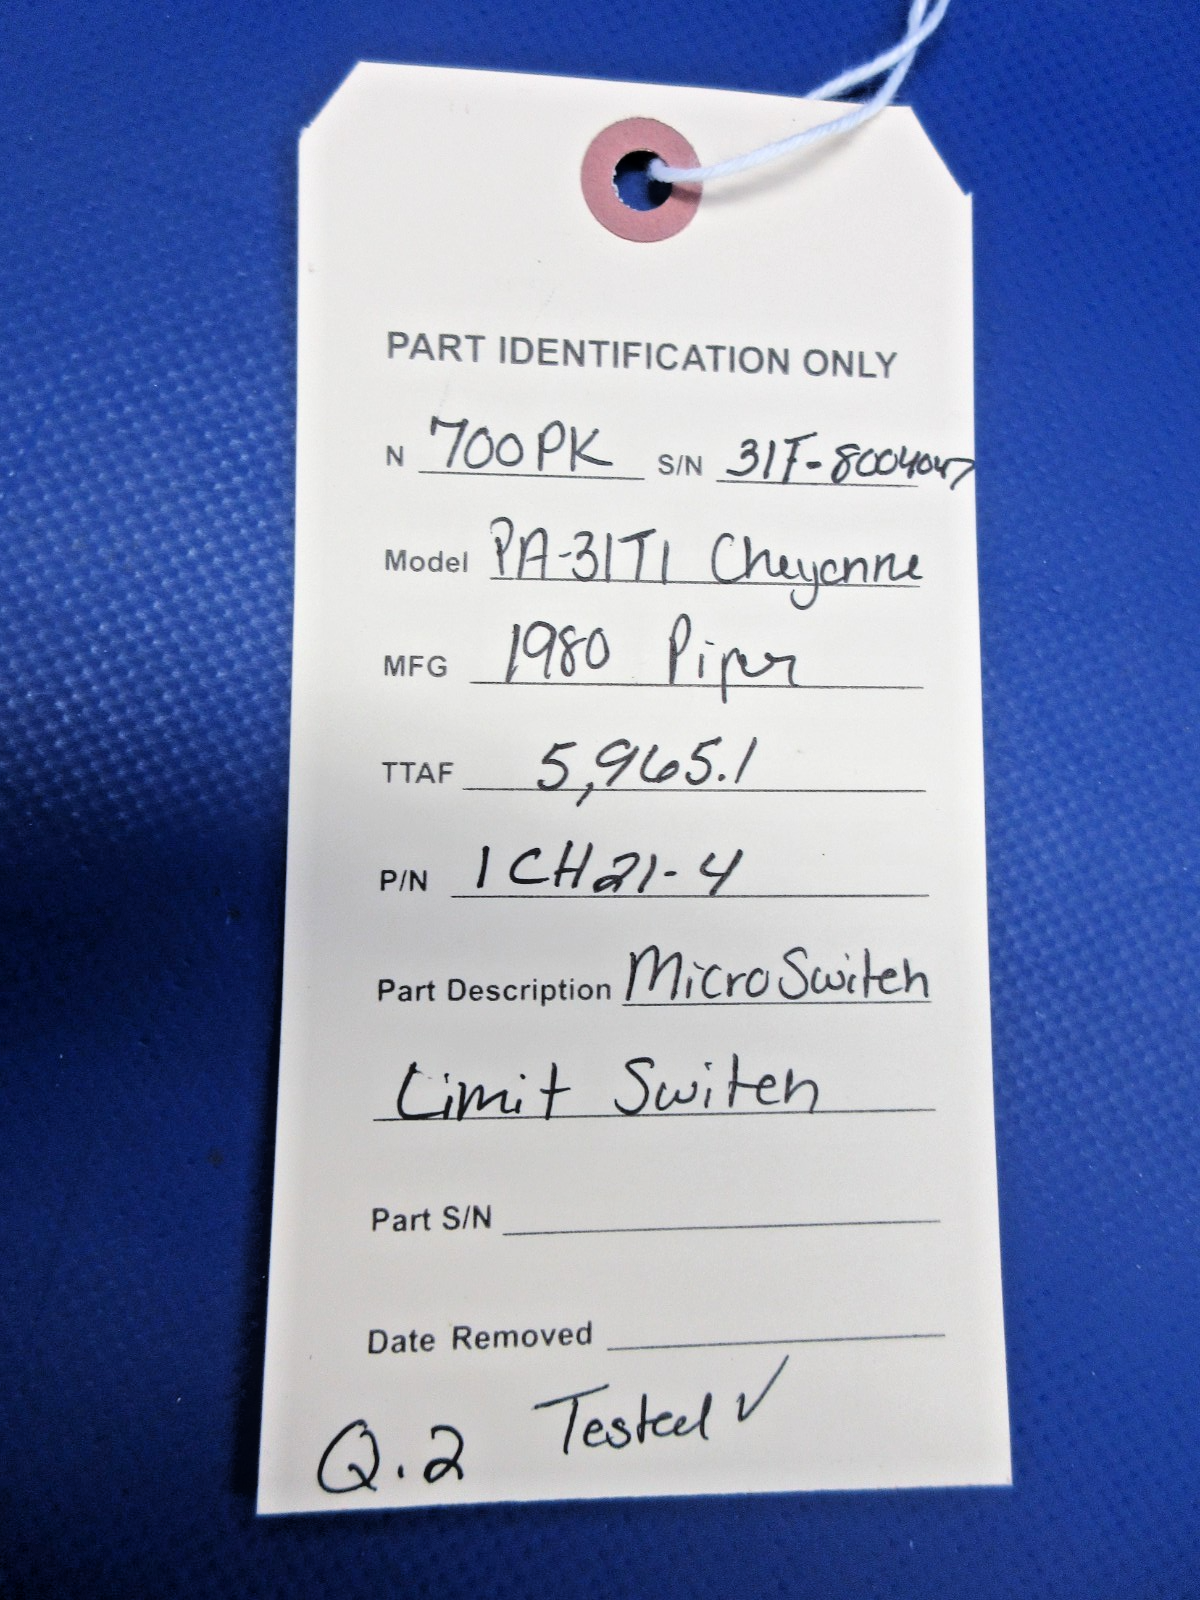 PART IDENTIFICATION ONLY
N 700PK S/N 31T-8004047
Model PA-31T1 Cheyenne
MFG 1980 Piper
TTAF 5,965.1
P/N 1CH21-4
Part Description Micro Switch
Limit Switch
Part S/N
Date Removed
Q.2 Tested ✓